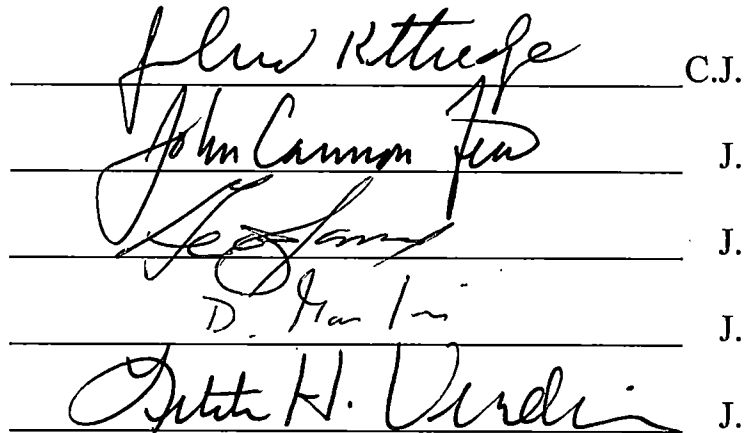 John Kittredge C.J.
John Cannon Few J.
Geo James J.
D. Martin J.
Letitia H. Verdin J.